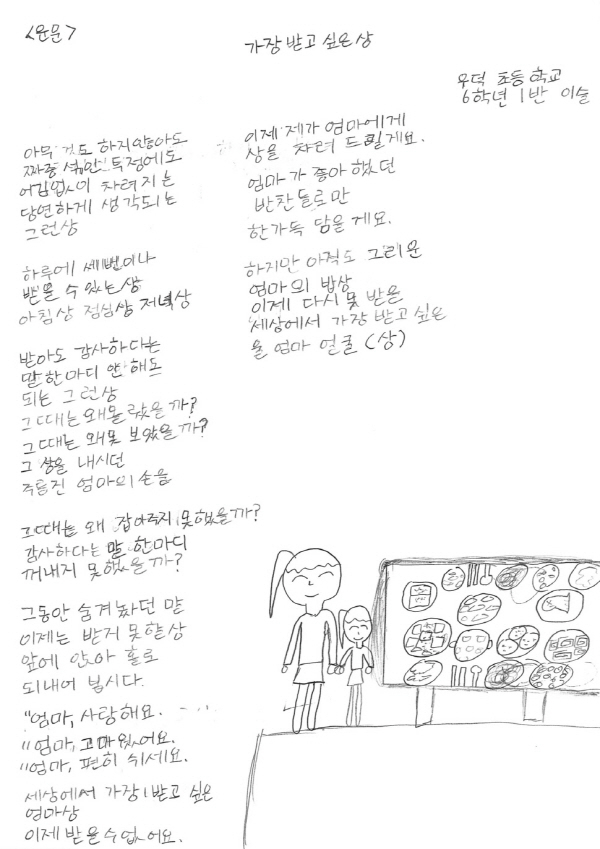 <운문>
가장 받고 싶은 상
우덕 초등학교
6학년 1반 이슬
아무 것도 하지 않아도
짜증 섞인 투정에도
어김없이 차려지는
당연하게 생각되는
그런상
하루에 세번이나
받을 수 있는 상
아침상 점심상 저녁상
받아도 감사하다는
말 한마디 안 해도
되는 그런상
그때는 왜 몰랐을까?
그때는 왜 못 보았을까?
그 상을 내시던
주름진 엄마의 손을
그때는 왜 잡아주지 못했을까?
감사하다는 말 한마디
꺼내지 못했을까?
그동안 숨겨놨던 말
이제는 받지 못할상
앞에 앉아 홀로
되내어 봅시다.
"엄마, 사랑해요.
"엄마, 고마웠어요.
"엄마, 편히 쉬세요.
세상에서 가장 받고 싶은
엄마상
이제 받을수없어요.
이제 제가 엄마에게
상을 차려 드릴게요.
엄마가 좋아했던
반찬들로만
한가득 담을게요.
하지만 아직도 그리운
엄마의 밥상
이제 다시 못 받을
세상에서 가장 받고 싶은
울 엄마 얼굴 (상)